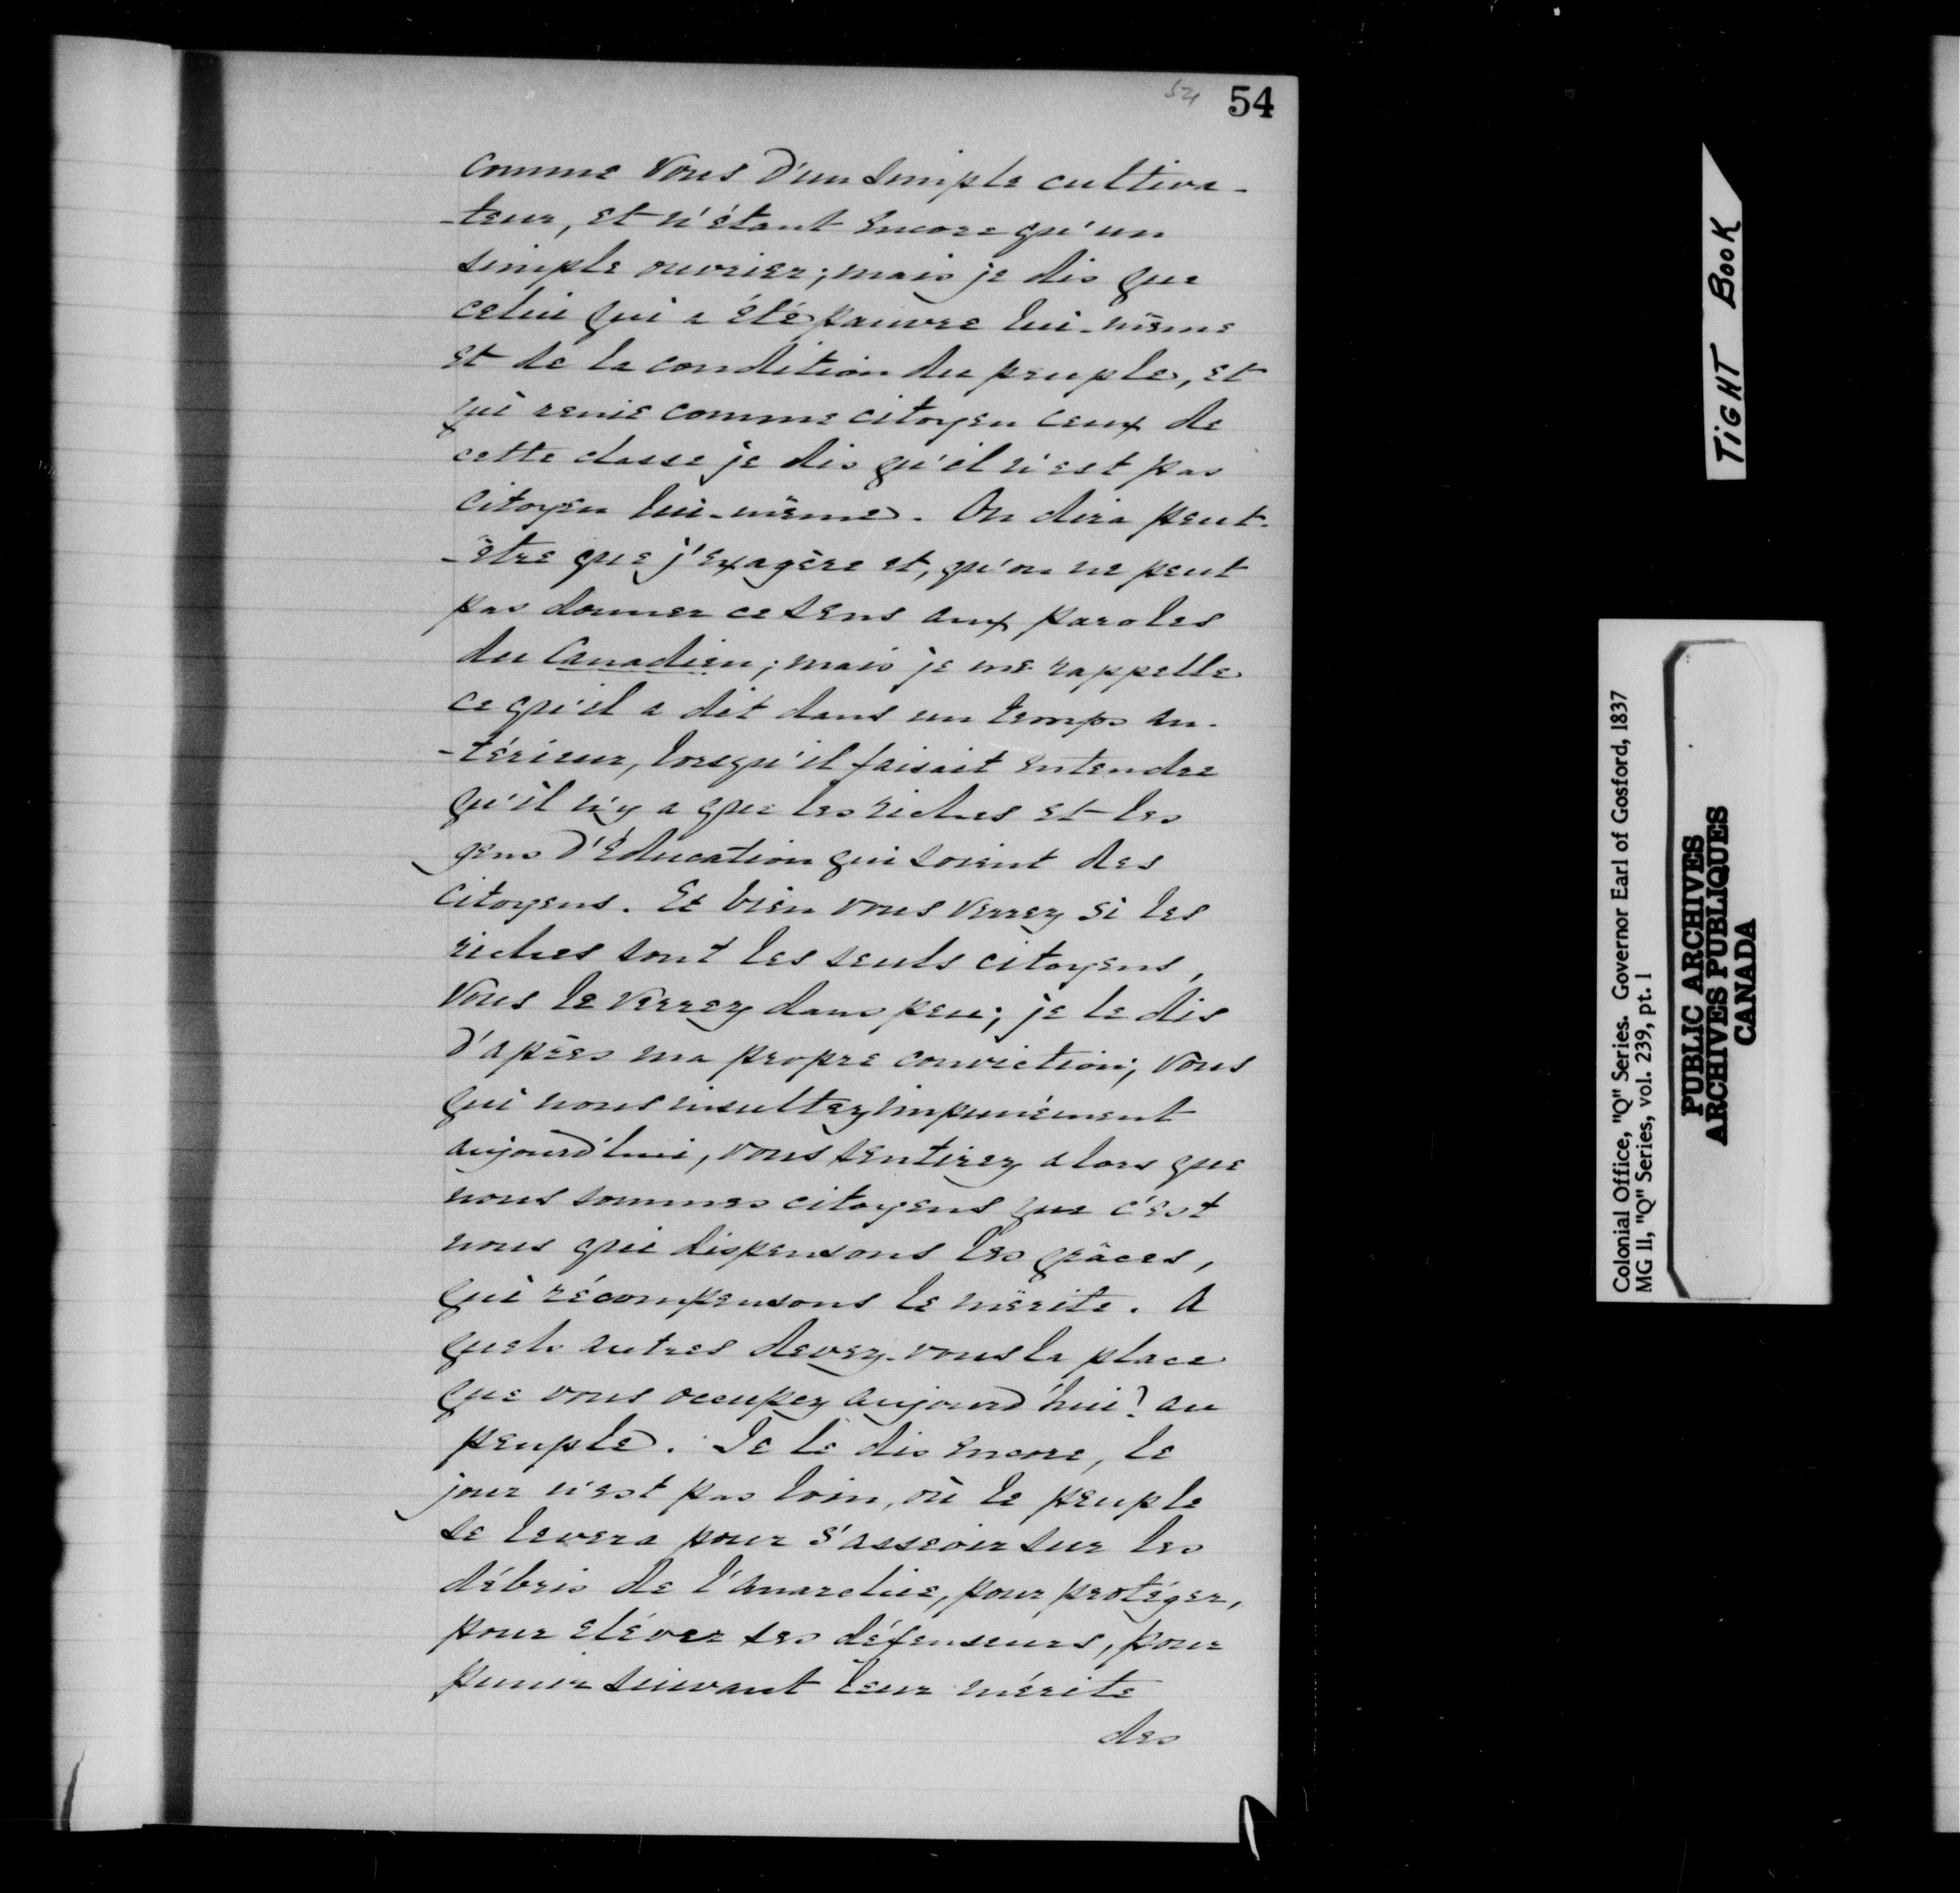 54 54
Comme Vous d'un simple cultiva-
-teur, et n'étant encore qu'un
simple ouvrier; mais je dis que
celui qui a été pauvre lui-même
et de la condition du peuple, et
qui renie comme citoyen ceux de
cette classe je dis qu'il n'est pas
citoyen lui-même. On dira peut-
-être que j'exagère et, qu'on ne peut
pas donner ce sens aux paroles
du Canadien; mais je me rappelle
ce qu'il a dit dans un temps an-
-térieur, lorsqu'il faisait entendre
qu'il n'y a que les riches et les
gens d'éducation qui soient des
citoyens. Et bien vous verrez si les
riches sont les seuls citoyens,
Vous le verrez dans peu; je le dis
d'après ma propre conviction; vous
qui nous insultez impunément
aujourd'hui, vous sentirez alors que
nous sommes citoyens que c'est
nous qui dispensons les grâces,
qui récompensons le mérite. A
quels autres devez-vous la place
que vous occupez aujourd'hui? au
peuple. Je le dis encore, le
jour n'est pas loin, où le peuple
se levera pour s'asseoir sur les
débris de l'anarchie, pour protéger,
pour eléver ses défenseurs, pour
punir suivant leur mérite
des
TIGHT BOOK
Colonial Office, "Q" Series. Governor Earl of Gosford, 1837
MG 11, "Q" Series, vol. 239, pt. 1
PUBLIC ARCHIVES
ARCHIVES PUBLIQUES
CANADA